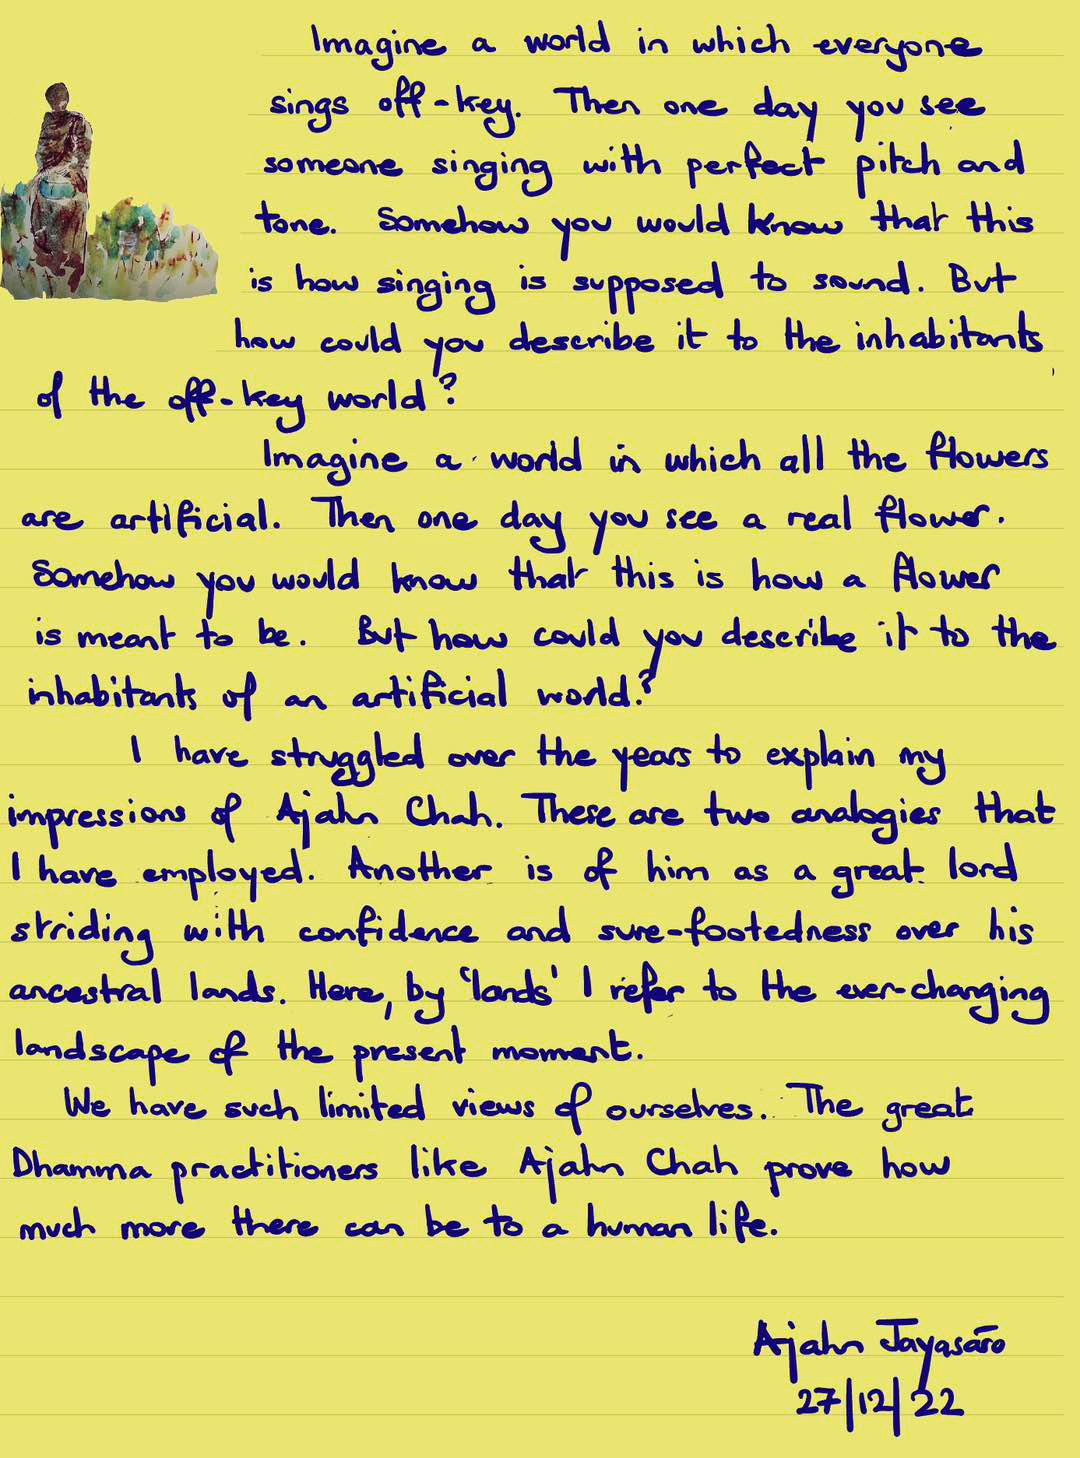 Imagine a world in which everyone
sings off-key. Then one day you see
someone singing with perfect pitch and
tone. Somehow you would know that this
is how singing is supposed to sound. But
how could you describe it to the inhabitants
of the off-key world?
Imagine a world in which all the flowers
are artificial. Then one day you see a real flower.
Somehow you would know that this is how a flower
is meant to be. But how could you describe it to the
inhabitants of an artificial world?
I have struggled over the years to explain my
impressions of Ajahn Chah. These are two analogies that
I have employed. Another is of him as a great lord
striding with confidence and sure-footedness over his
ancestral lands. Here, by 'lands' I refer to the ever-changing
landscape of the present moment.
We have such limited views of ourselves. The great
Dhamma practitioners like Ajahn Chah prove how
much more there can be to a human life.
Ajahn Jayasāro
27/12/22